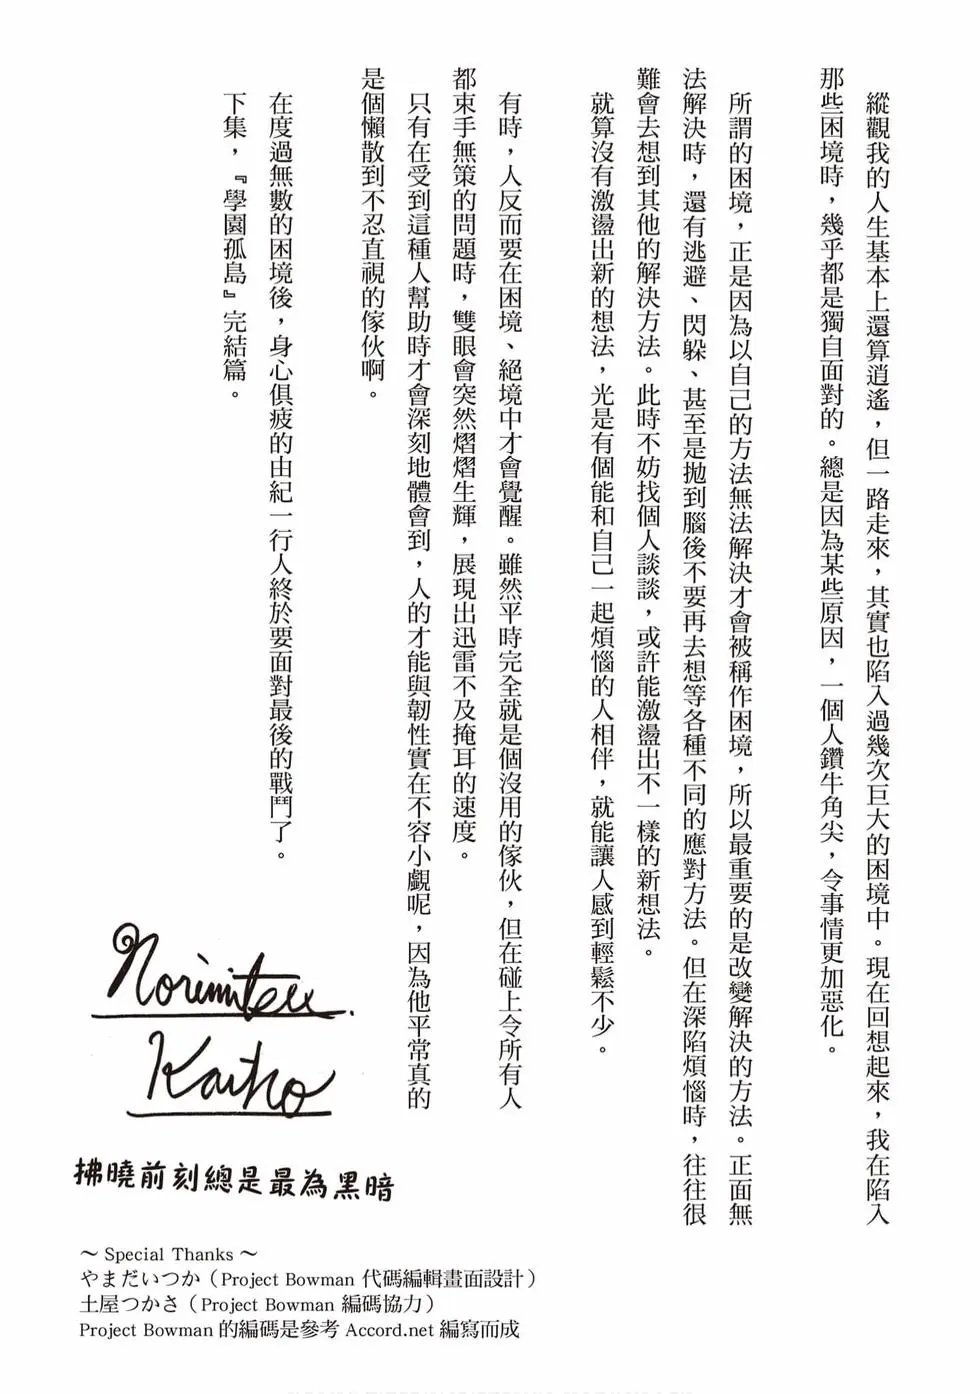 縱觀我的人生基本上還算逍遙，但一路走來，其實也陷入過幾次巨大的困境中。現在回想起來，我在陷入
那些困境時，幾乎都是獨自面對的。總是因為某些原因，一個人鑽牛角尖，令事情更加惡化。
所謂的困境，正是因為以自己的方法無法解決才會被稱作困境，所以最重要的是改變解決的方法。正面無
法解決時，還有逃避、閃躲、甚至是拋到腦後不要再去想等各種不同的應對方法。但在深陷煩惱時，往往很
難會去想到其他的解決方法。此時不妨找個人談談，或許能激盪出不一樣的新想法。
就算沒有激盪出新的想法，光是有個能和自己一起煩惱的人相伴，就能讓人感到輕鬆不少。
有時，人反而要在困境、絕境中才會覺醒。雖然平時完全就是個沒用的傢伙，但在碰上令所有人
都束手無策的問題時，雙眼會突然熠熠生輝，展現出迅雷不及掩耳的速度。
只有在受到這種人幫助時才會深刻地體會到，人的才能與韌性實在不容小覷呢，因為他平常真的
是個懶散到不忍直視的傢伙啊。
在度過無數的困境後，身心俱疲的由紀一行人終於要面對最後的戰鬥了。
下集，『學園孤島』完結篇。
Norimitsu
Kaiho
拂曉前刻總是最為黑暗
～ Special Thanks ～
やまだいつか（Project Bowman 代碼編輯畫面設計）
土屋つかさ（Project Bowman 編碼協力）
Project Bowman 的編碼是參考 Accord.net 編寫而成